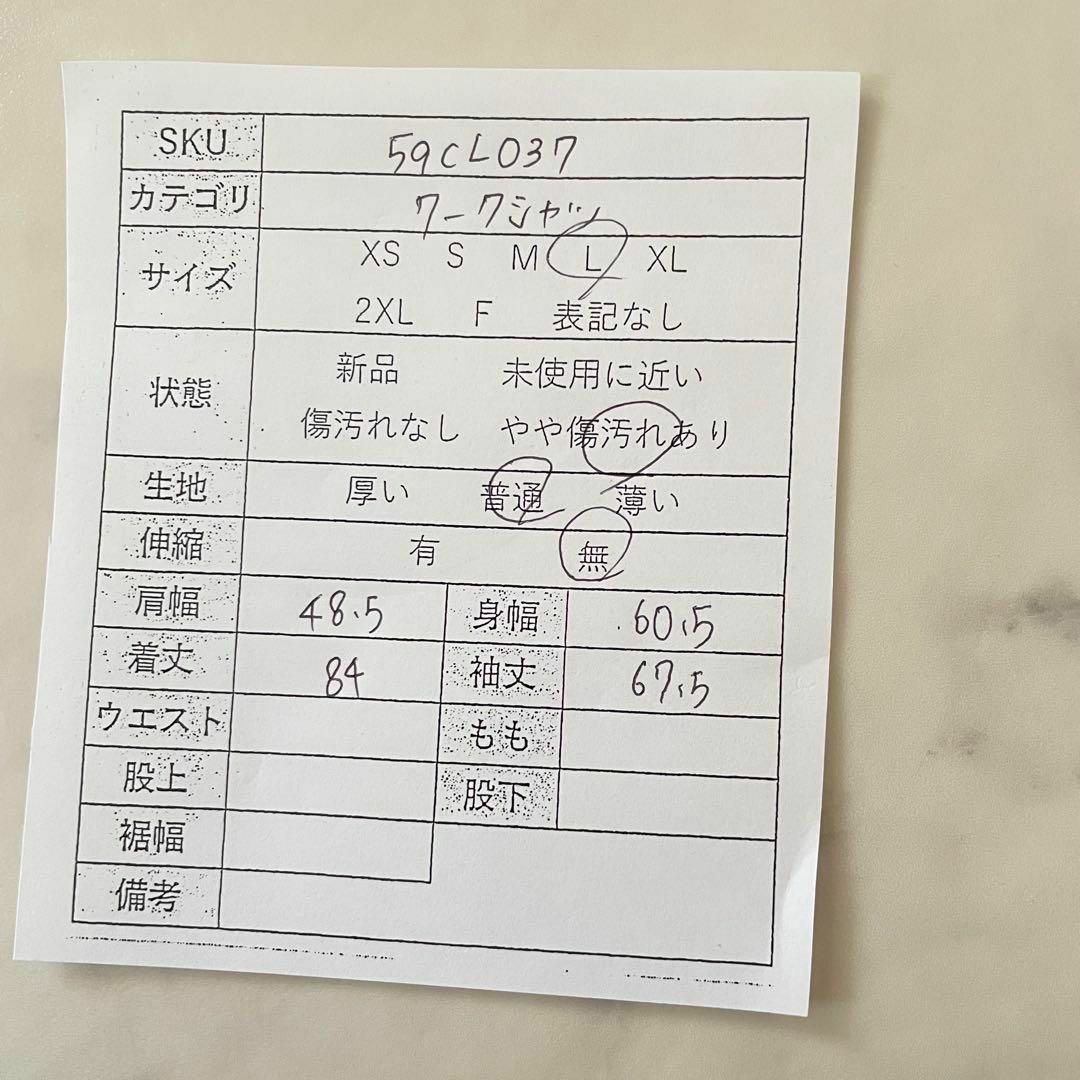 SKU 59CL037
カテゴリ ワークシャツ
サイズ XS S M L XL
2XL F 表記なし
状態 新品 未使用に近い
傷汚れなし やや傷汚れあり
生地 厚い 普通 薄い
伸縮 有 無
肩幅 48.5 身幅 60.5
着丈 84 袖丈 67.5
ウエスト もも
股上 股下
裾幅
備考